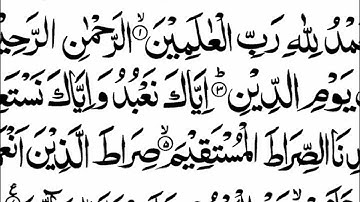 مْدُ لِلّٰهِ رَبِّ الْعٰلَمِیْنَ ۙ﴿۱﴾ الرَّحْمٰنِ الرَّحِیْ
یَوْمِ الدِّیْنِ ؕ﴿۳﴾ اِیَّاكَ نَعْبُدُ وَ اِیَّاكَ نَسْتَعِ
دِنَا الصِّرَاطَ الْمُسْتَقِیْمَ ۙ﴿۵﴾ صِرَاطَ الَّذِیْنَ اَنْعَ